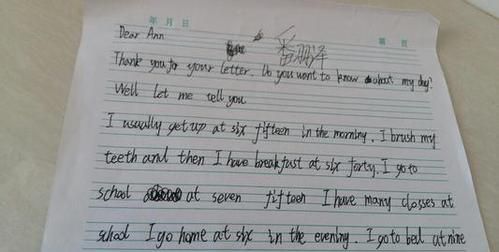 年 月 日
第 页
Dear Ann
Thank you for your letter. Do you want to know about my day?
Well let me tell you
I usually get up at six fifteen in the morning. I brush my
teeth and then I have breakfast at six forty. I go to
school at seven fifteen I have many classes at
school I go home at six in the evening. I go to bed at nine